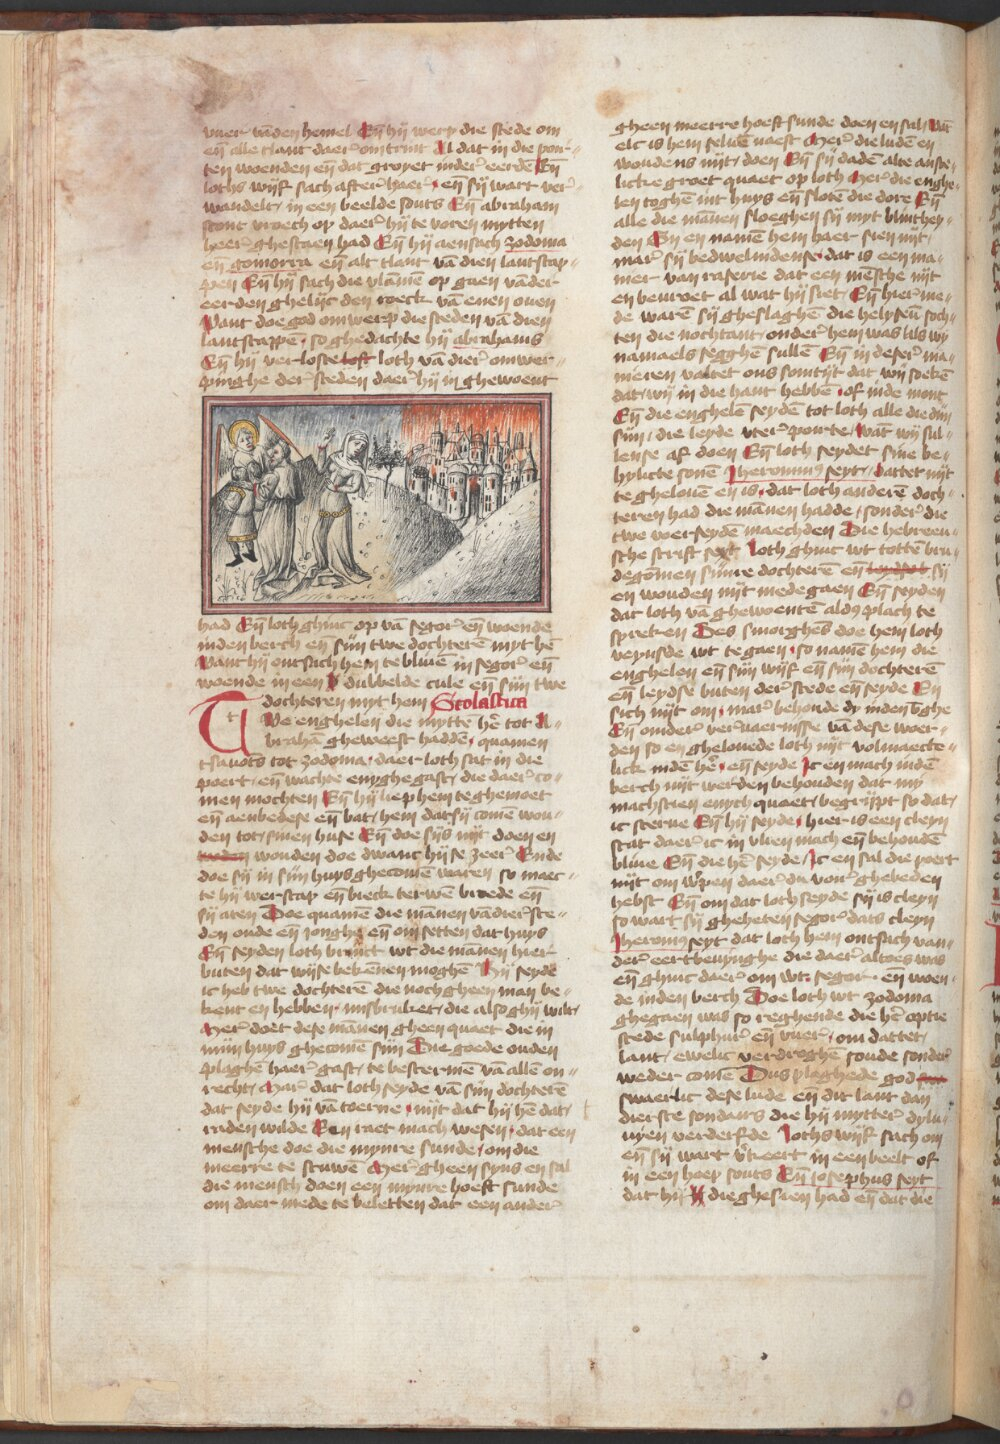 vuer vāden hemel Eñ hij werp die stede om
eñ alle tlant daer omtrint Al dat in die por-
ten woenden eñ dat groyet inder eerdē Eñ
loths wijf sach after haer, eñ sij wart ver-
wandelt in een beelde souts Eñ abraham
stont vroech op daer hij te voren mytten
heer ghestaen had Eñ hij aensach zodoma
eñ gomorra eñ alt tlant vā dien lantscap-
pen Eñ hij sach die vlāmē op gaen vāder
eerden ghelijc den roeck vā enen ouen
Want doe god omwerp die steden vā dien
lantscappē, so ghedachte hij abrahams
Eñ hij verloste loth vā dier omwer-
pinghe der steden daer hij in ghewoent
had Eñ loth ghinc op vā segor eñ woende
inden berch eñ sijn twe dochterē myt hē
Want hij ontsach hem te bliuē in segor eñ
woende in een dubbelde cule eñ sijn twe
dochteren myt hem Scolastica
We enghelen die mytte hē tot A-
brahā gheweest hadden, quamen
tsauots tot zodoma, daer loth sat in die
poert, eñ wachte enyghe gast, die daer co-
men mochten Eñ hij liep hem teghemoet
eñ aenbedese eñ bat, hem dat sy comē wou-
den tot sinen huse Eñ doe sijs nijt doen en
wouden doe dwanc hijse zeer Ende
doe sij in sijn huys ghecomē waren so maec-
te hij werscap eñ bieck terwen broede eñ
sij aten Doe quamē die mānen vā dier ste-
den oude eñ jonghe eñ om setten dat huys
Eñ seyden loth brinct wt die mānen hier
buten dat wijse bekēnen moghē Hij seyde
ic heb twe dochterē die noch gheen man be-
kent en hebben, misbruket, die also ghij wilt,
Mer doet dese mānen gheen quaet die in
mijn huys ghecomē sijn Die goede ouden
plaghē haer gast, te beschermē vā allē on-
recht, Mar dat loth seyde vā sijn dochterē
dat seyde hij vā toerne, nijt dat hij hē dat,
raden wilde Een raet mach wesen, dat een
mensche doe die mynre sunde, om die
meerre te scuwē Mer gheen syns en sal
die mensch doen een mynre hoeft sunde
om daer mede te beletten dat een ander
gheen meerre hoeft sunde doen en sal, Wāt
elc is hem seluē naest Mer die luden en
woudens nijt, doen Eñ sij dadē alte anxte-
licke groet quaet op loth Mer die enghe-
len toghē int huys eñ slotē die dore Eñ
alle die mānen sloeghen sij myt blinthey-
den Eñ en namē hem haer sien nijt,
mar sij bedwelmdense, dat is een ma-
nier van raserie dat een mēsche nijt
en beuroet al wat hij siet, Eñ hier me-
de warē sij gheslaghē die helyseū soch-
ten die nochtant, onder hem was als wij
namaels segghē sullē Eñ in deser ma-
nieren valtet ons somtijt dat wij soekē
dat, wij in die hant hebbē, of inde mont
Eñ die enghelē seydē tot loth alle die dijn
sijn, die leyde vter porte, Wāt wij sul-
lense af doen Eñ loth seydet sine be-
hylicte sonē Jheronimus seyt, dattet nijt
te ghelouē en is, dat loth anderē doch-
teren had die mānen hadde, sonder die
twe voerseydē maechden Die hebreeu-
sche scrift seyt Loth ghinc wt tottē bru-
degomen sijnre dochterē eñ sij
en wouden nijt mede gaen Eñ seyden
dat loth vā ghewoentē aldꝰ plach te
spreken Des smorghēs doe hem loth
veynsde wt te gaen, so namē hem die
enghelen eñ sijn wijf eñ sijn dochterē
eñ leydse buten der stede eñ seyde En
sich nijt om, mar behoude dy inden berghe
Eñ onder veruaernisse vā dese wor-
den so en ghelouede loth nijt volmaecte-
lick inden hē, eñ seyde Ic en mach indē
berch nijt werden behouden dat my
machscien enych quaet, begrijpt so dat,
ic sterue Eñ hij seyde, hier is een cleyn
stat daer ic in vlien mach eñ behoudē
bliue Eñ die hē seyde, Ic en sal die poert
nijt om werpen daer du voer ghebeden
hebst Eñ om dat loth seyde sij is cleyn
so wart sij gheheten segor dats cleyn
Jheronimꝰ seyt dat loth hem ontsach van-
der eertbeuynghe die daer altoes was
eñ ghinc daer om wt segor eñ woen-
de inden berch Doe loth wt zodoma
ghegaen was so reghende die hē op die
stede sulphur eñ vuer, om dattet,
lant, ewelic verdroghē soude sonder
weder comē Dus plaghede god
swaerlic dese lude eñ dit lant dan
dierste sondairs die hij mytter dylu-
uyen verderfde Loths wijf sach om
eñ sij wart verkeert in een beelt of
in een hoep souts Eñ josephus seyt
dat hij die ghesien had eñ dat die